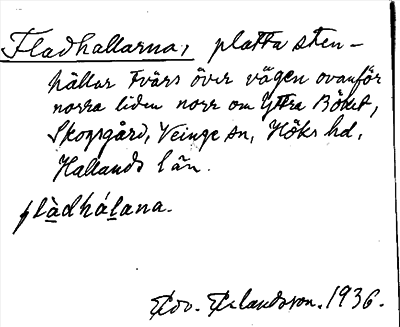 Fladhallarna, platta sten-
hällar tvärs över vägen ovanför
norra liden norr om Yttra Böket,
Skogsgård, Veinge sn, Höks hd,
Hallands län.
flàdháḷana.
Edv. Erlandsson. 1936.